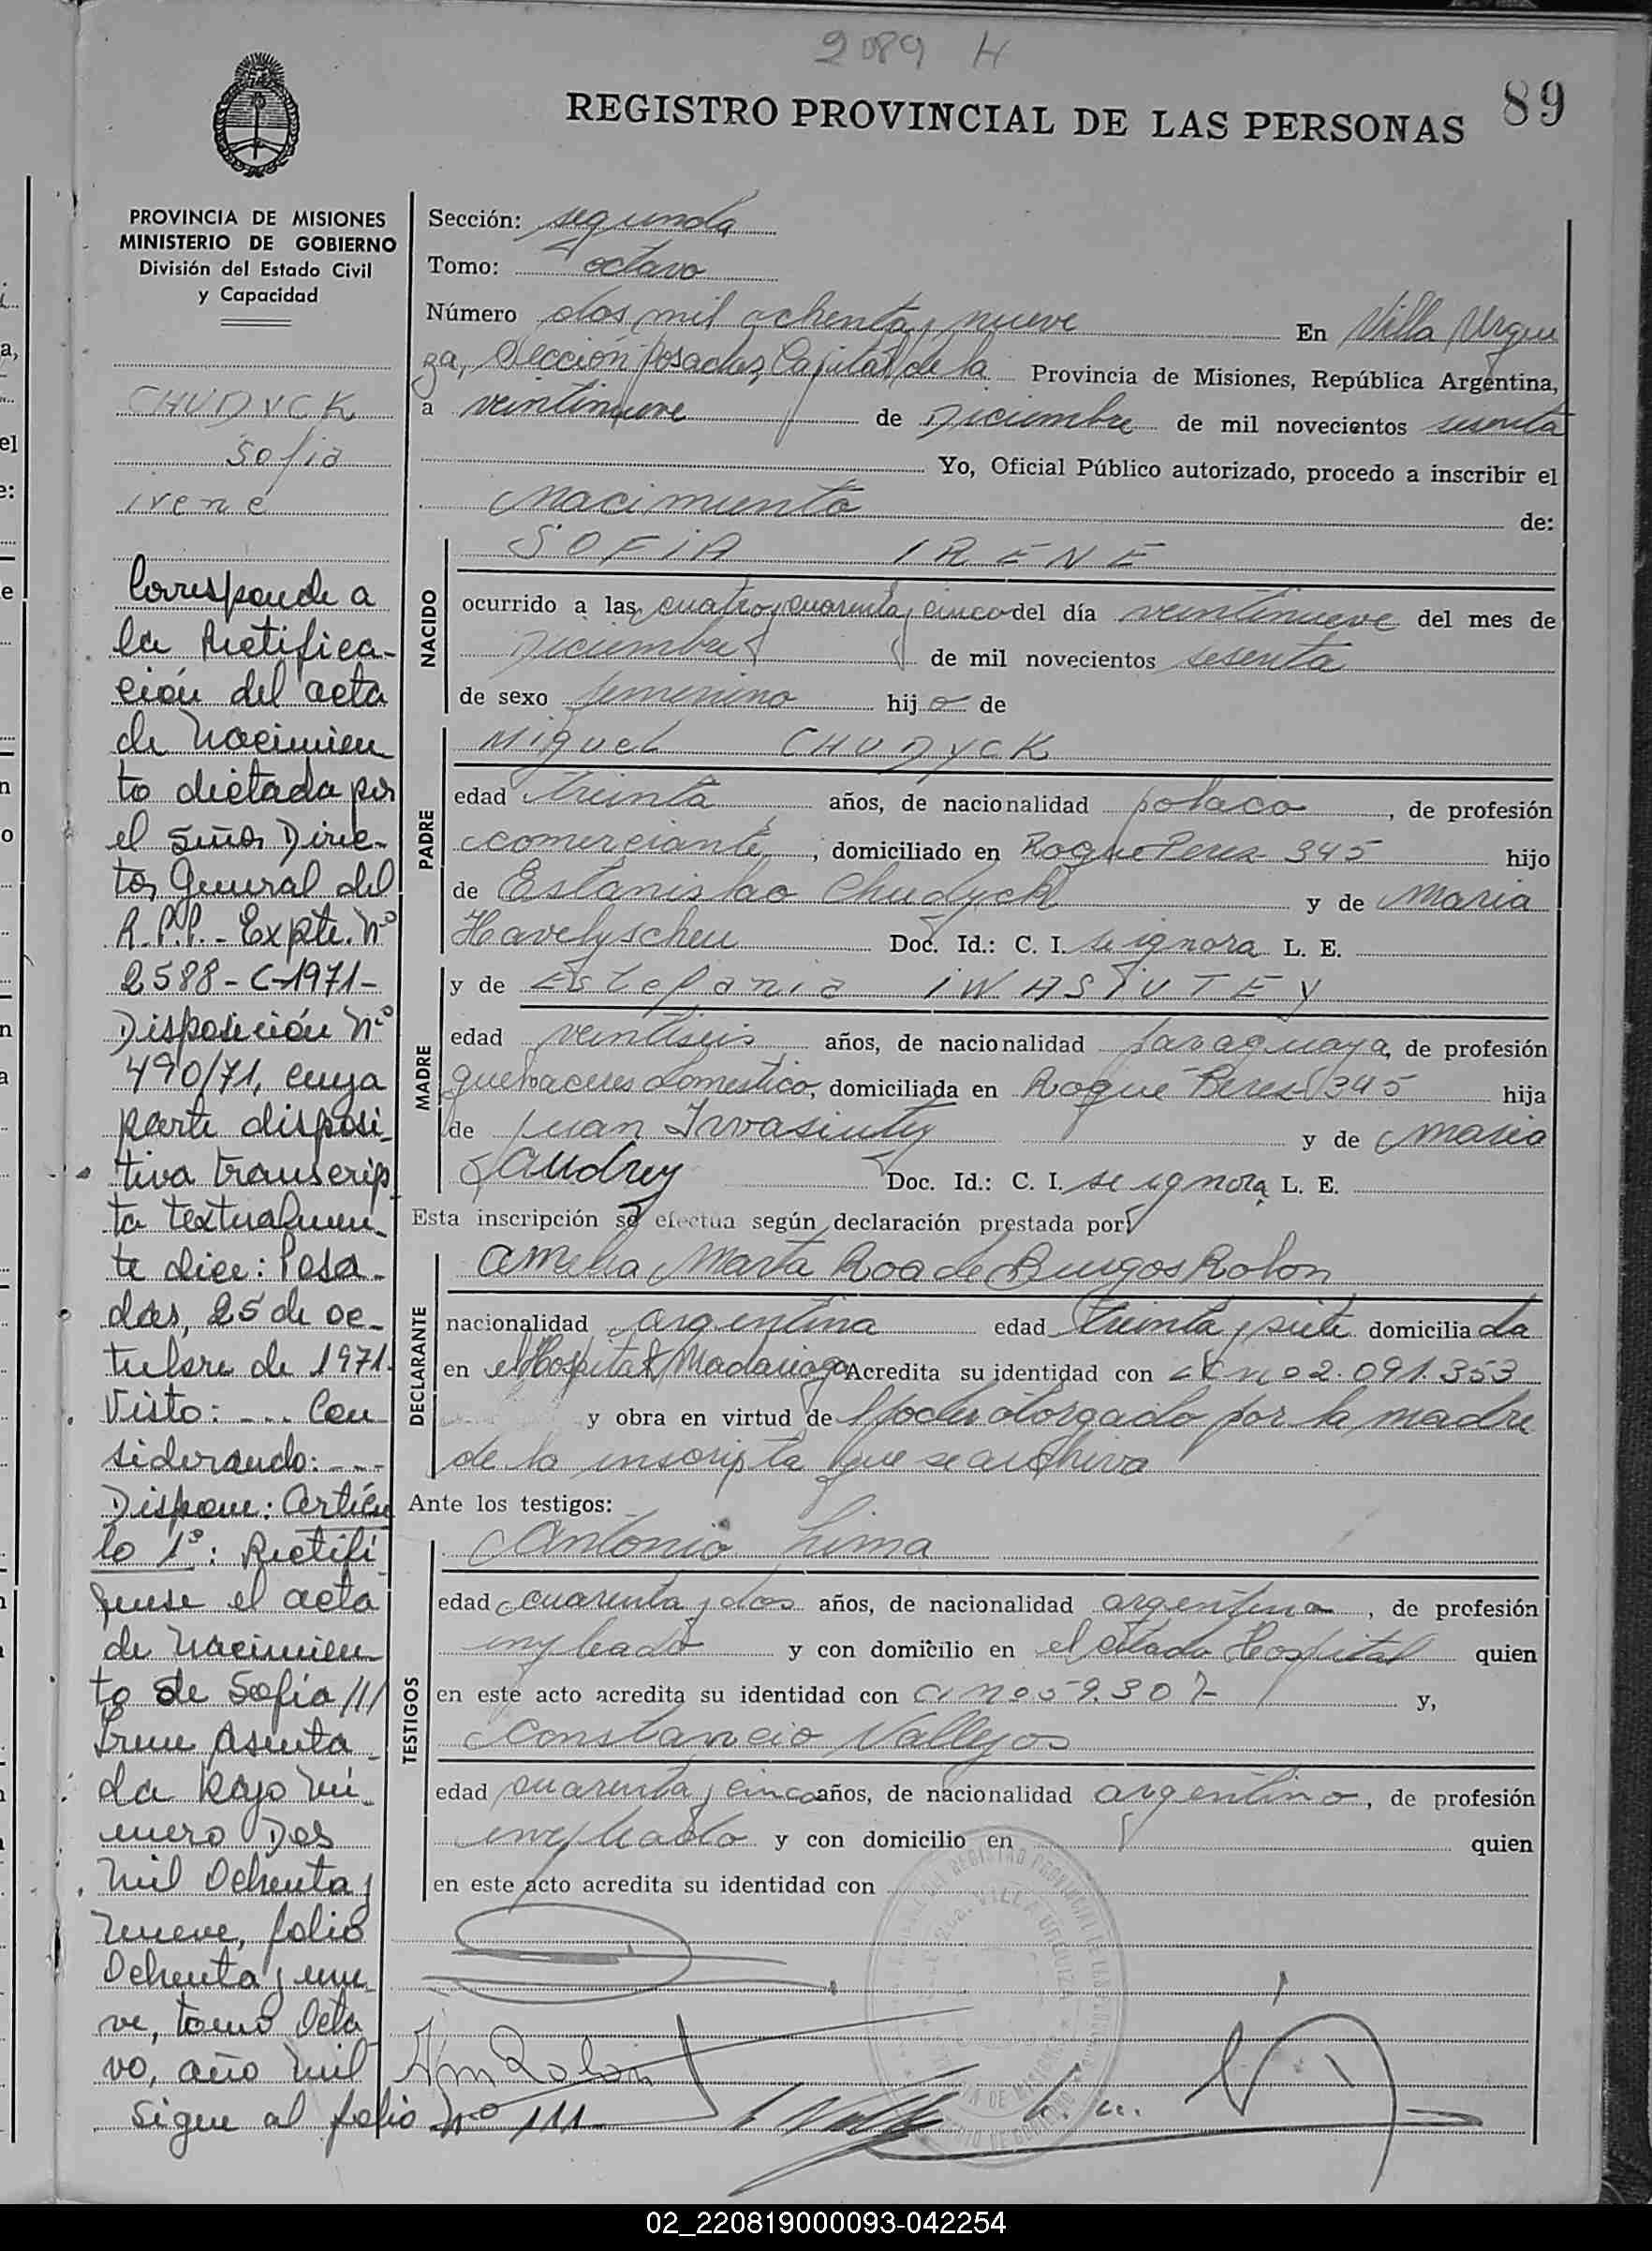 2089 H
89
REGISTRO PROVINCIAL DE LAS PERSONAS
PROVINCIA DE MISIONES
MINISTERIO DE GOBIERNO
División del Estado Civil
y Capacidad
CHUDYCK
Sofia
irene
Corresponde a
la Rectifica-
ción del acta
de Nacimien
to dictada por
el Señor Direc-
tor General del
R.P.P. - Expte. Nº
2588-C-1971-
Disposición Nº
490/71, cuya
parte disposi-
tiva transcrip
ta textualmen-
te dice: Posa-
das, 25 de oc-
tubre de 1971.
Visto: -... Con
siderando: ---
Dispone: Artícu
lo 1º: Rectifí
quese el acta
de Nacimien
to de Sofía ///
Irene Asenta-
da bajo nú-
mero Dos
Mil Ochenta y
nueve, folio
Ochenta y nue
ve, tomo Octa
vo, año mil
Sigue al folio Nº 111
Sección: segunda
Tomo: octavo
Número dos mil ochenta y nueve En Villa Urqui
za, Sección Posadas, Capital de la Provincia de Misiones, República Argentina,
a veintinueve de Diciembre de mil novecientos sesenta
Yo, Oficial Público autorizado, procedo a inscribir el
Nacimiento de:
NACIDO
SOFIA IRENE
ocurrido a las cuatro y cuarenta y cinco del día veintinueve del mes de
Diciembre de mil novecientos sesenta
de sexo femenino hija de
PADRE
Miguel CHUDYCK
edad treinta años, de nacionalidad polaco, de profesión
comerciante, domiciliado en Roque Perez 345 hijo
de Estanislao Chudyck y de Maria
Havelyscheu Doc. Id.: C. I. se ignora L. E.
MADRE
y de Estefania IWASIUTEY
edad veintiseis años, de nacionalidad paraguaya, de profesión
quehaceres domestico, domiciliada en Roque Perez 345 hija
de Juan Iwasiutey y de Maria
Doc. Id.: C. I. se ignora L. E.
Esta inscripción se efectua según declaración prestada por
DECLARANTE
Amelia Marta Roa de Burgos Rolon
nacionalidad argentina edad treinta y siete domiciliada
en el Hospital Madariaga Acredita su identidad con LC nº 2.091.353
y obra en virtud de Poder otorgado por la madre
de la inscripta que se archiva
Ante los testigos:
TESTIGOS
Antonio Lima
edad cuarenta y dos años, de nacionalidad argentino, de profesión
empleado y con domicilio en el citado Hospital quien
en este acto acredita su identidad con CI nº 59.307 y,
Constancio Vallejos
edad cuarenta y cinco años, de nacionalidad argentino, de profesión
empleado y con domicilio en quien
en este acto acredita su identidad con
02_220819000093-042254